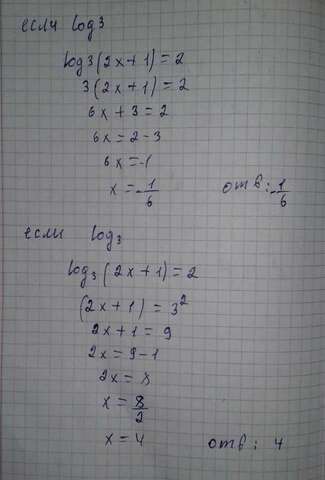 если log3
log3(2x+1)=2
3(2x+1)=2
6x+3=2
6x=2-3
6x=-1
x=-1/6 отв: -1/6
если log₃
log₃(2x+1)=2
(2x+1)=3²
2x+1=9
2x=9-1
2x=8
x=8/2
x=4 отв: 4